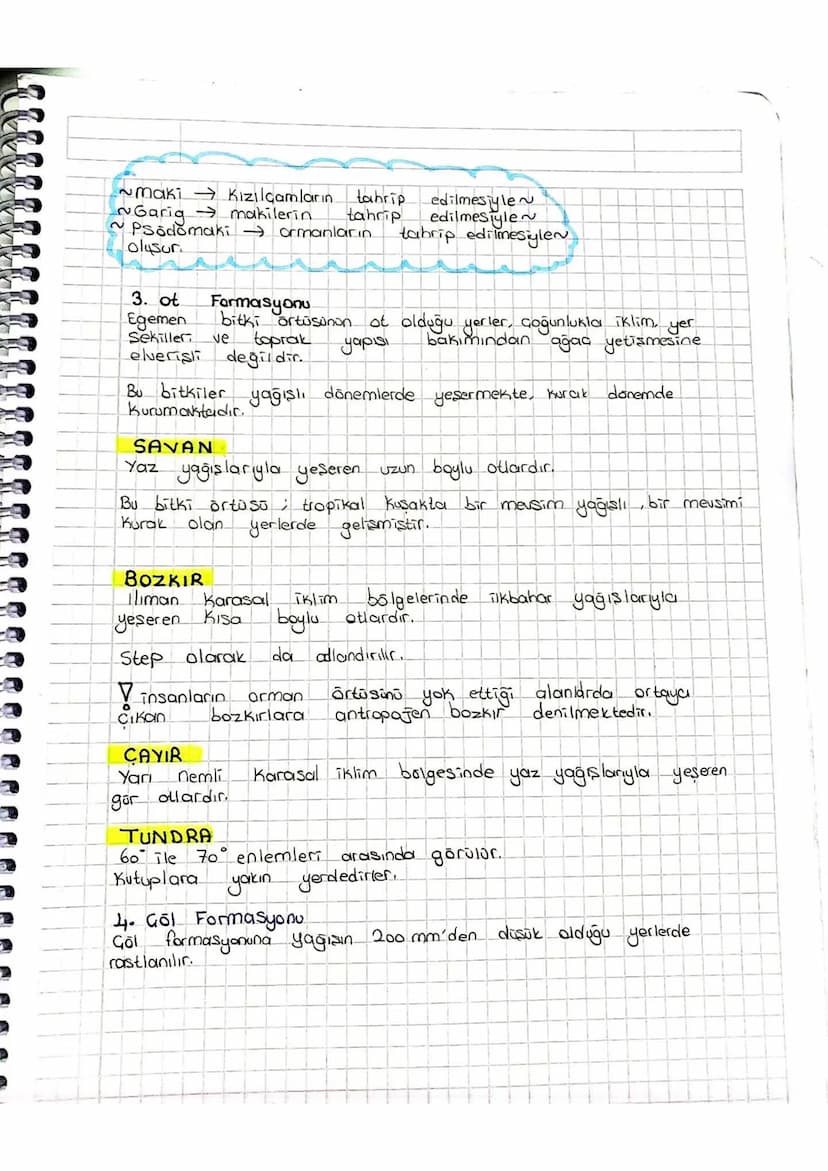 ~maki → Kızılçamların tahrip edilmesiyle~
~Garig → makilerin tahrip edilmesiyle~
~ Psödomaki → ormanların tahrip edilmesiyle~
oluşur.
3. ot Formasyonu
Egemen bitki örtüsünün ot olduğu yerler, çoğunlukla iklim, yer
şekilleri ve toprak yapısı bakımından ağaç yetişmesine
elverişli değildir.
Bu bitkiler yağışlı dönemlerde yeşermekte, kurak dönemde
kurumaktadır.
SAVAN
Yaz yağışlarıyla yeşeren uzun boylu otlardır.
Bu bitki örtüsü ; tropikal kuşakta bir mevsim yağışlı, bir mevsimi
kurak olan yerlerde gelişmiştir.
BOZKIR
Ilıman Karasal iklim bölgelerinde ilkbahar yağışlarıyla
yeşeren kısa boylu otlardır.
Step olarak da adlandırılır.
! insanların orman örtüsünü yok ettiği alanlarda ortaya
çıkan bozkırlara antropojen bozkır denilmektedir.
ÇAYIR
Yarı nemli Karasal iklim bölgesinde yaz yağışlarıyla yeşeren
gür otlardır.
TUNDRA
60° ile 70° enlemleri arasında görülür.
Kutuplara yakın yerdedirler.
4. Çöl Formasyonu
Çöl formasyonuna yağışın 200 mm'den düşük olduğu yerlerde
rastlanılır.